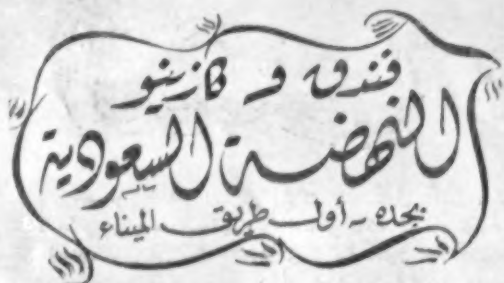 فندق و كازينو
النهضة السعودية
بجده - أول طريق الميناء